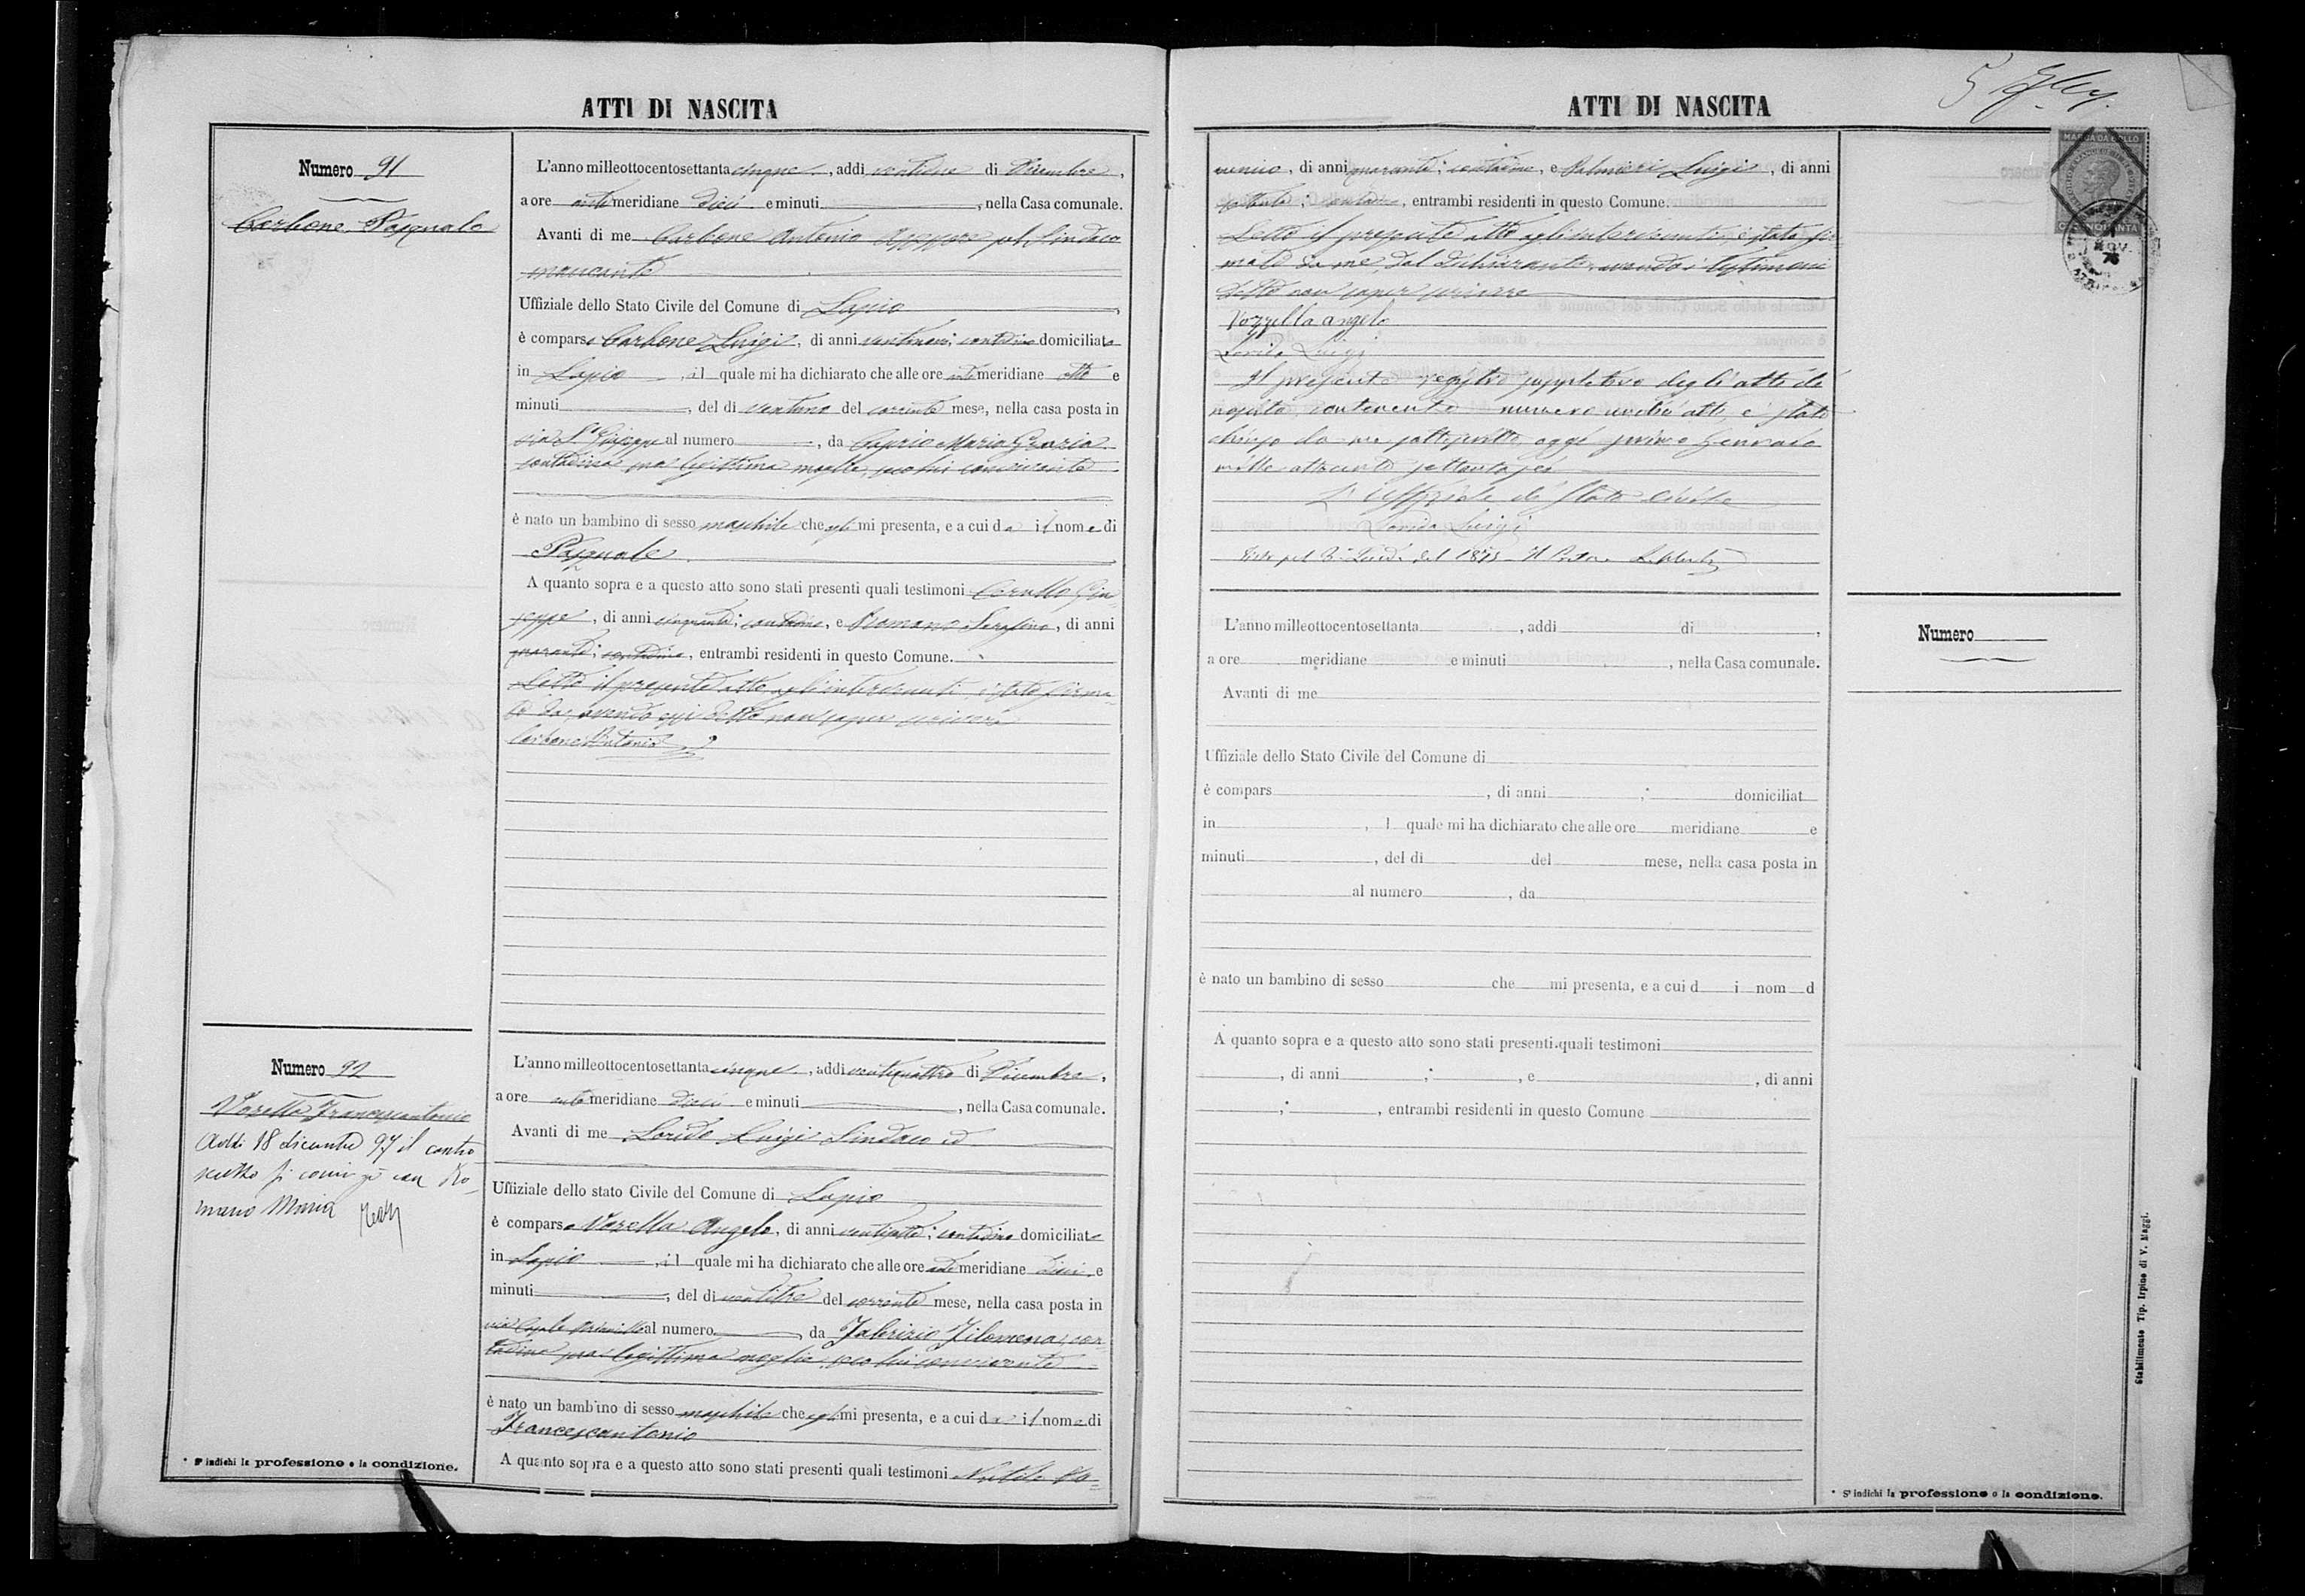 ATTI DI NASCITA
Numero 91
Carbone Pasquale
L'anno milleottocentosettanta cinque, addì ventuno di Dicembre,
a ore anti meridiane dieci e minuti, nella Casa comunale.
Avanti di me Carbone Antonio Assessore pel Sindaco
mancante
Uffiziale dello Stato Civile del Comune di Lapio
è comparso Carbone Luigi, di anni; contadino domiciliato
in Lapio, il quale mi ha dichiarato che alle ore anti meridiane otto e
minuti, del dì ventuno del corrente mese, nella casa posta in
via S. Giuseppe al numero, da Caprio Maria Grazia
contadina sua legittima moglie, seco lui convivente
è nato un bambino di sesso maschile che egli mi presenta, e a cui dà il nome di
Pasquale
A quanto sopra e a questo atto sono stati presenti quali testimoni Cerullo Giu-
seppe, di anni cinquanta; contadino, e Romano Serafino, di anni
quaranta; contadino, entrambi residenti in questo Comune.
Letto il presente atto agli intervenuti è stato firma-
to da, avendo essi detto non saper scrivere
Carbone Antonio
Numero 92
Vozella Francescantonio
Addì 18 dicembre 97 il contro
scritto si coniugò con Ro-
mano Maria
L'anno milleottocentosettanta cinque, addì ventiquattro di Dicembre,
a ore anti meridiane dieci e minuti, nella Casa comunale.
Avanti di me Lorido Luigi Sindaco ed
Uffiziale dello stato Civile del Comune di Lapio
è comparso Vozella Angelo, di anni ventisette; contadino domiciliato
in Lapio, il quale mi ha dichiarato che alle ore anti meridiane dieci e
minuti, del dì ventitre del corrente mese, nella casa posta in
via al numero da Fabrizio Filomena, con-
tadina sua legittima moglie, seco lui convivente
è nato un bambino di sesso maschile che egli mi presenta, e a cui dà il nome di
Francescantonio
A quanto sopra e a questo atto sono stati presenti quali testimoni
* S' indichi la professione o la condizione.
ATTI DI NASCITA
MARCA DA BOLLO
, di anni quaranta; contadino, e Palmieri Luigi, di anni
settanta; contadino, entrambi residenti in questo Comune.
Letto il presente atto agli intervenuti, è stato fir-
mato da me, dal dichiarante, avendo i testimoni
detto non saper scrivere
Vozzella angelo
Lorido Luigi
Il presente registro suppletivo degli atti di
nascita contenente numero undici atti, è stato
chiuso da me sottoscritto oggi primo Gennaio
mille ottocento settantasei
L'Uffiziale di Stato Civile
Lorido Luigi
L'anno milleottocentosettanta, addì di,
a ore meridiane e minuti, nella Casa comunale.
Avanti di me
Uffiziale dello Stato Civile del Comune di
è compars, di anni; domiciliat
in, l quale mi ha dichiarato che alle ore meridiane e
minuti, del dì del mese, nella casa posta in
al numero, da
è nato un bambino di sesso che mi presenta, e a cui d i nom d
A quanto sopra e a questo atto sono stati presenti quali testimoni
, di anni;, e, di anni
;, entrambi residenti in questo Comune
Numero
* S' indichi la professione o la condizione.
Stabilimento Tip. Irpino di V. Maggi.